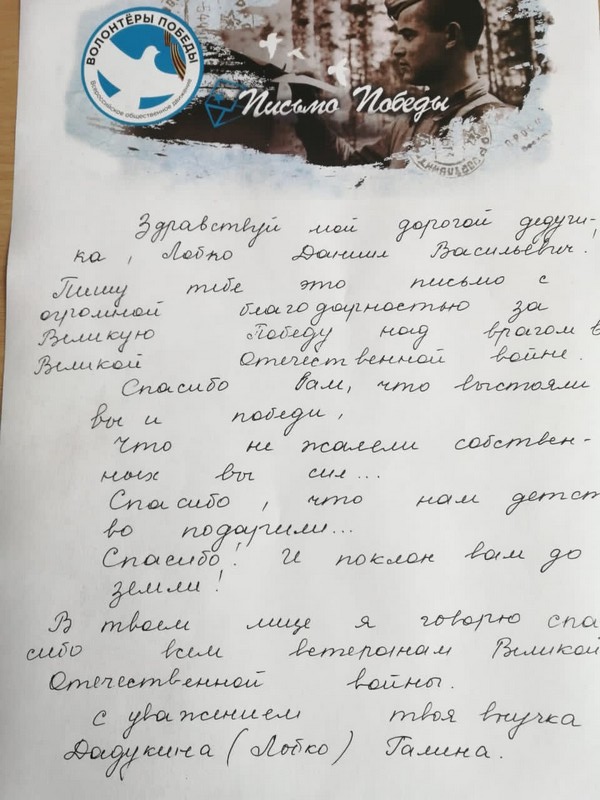 ВОЛОНТЁРЫ ПОБЕДЫ
Всероссийское общественное движение
Письмо Победы
Здравствуй мой дорогой дедуч-
ка, Лобко Даниил Васильевич.
Пишу тебе это письмо с
огромной благодарностью за
Великую Победу над врагом в
Великой Отечественной войне.
Спасибо Вам, что выстояли
вы и победи,
Что не жалели собствен-
ных вы сил...
Спасибо, что нам детст
во подарили...
Спасибо! И поклон вам до
земли!
В твоем лице я говорю спа
сибо всем ветеранам Великой
Отечественной войны.
с уважением твоя внучка
Дадукина (Лобко) Галина.